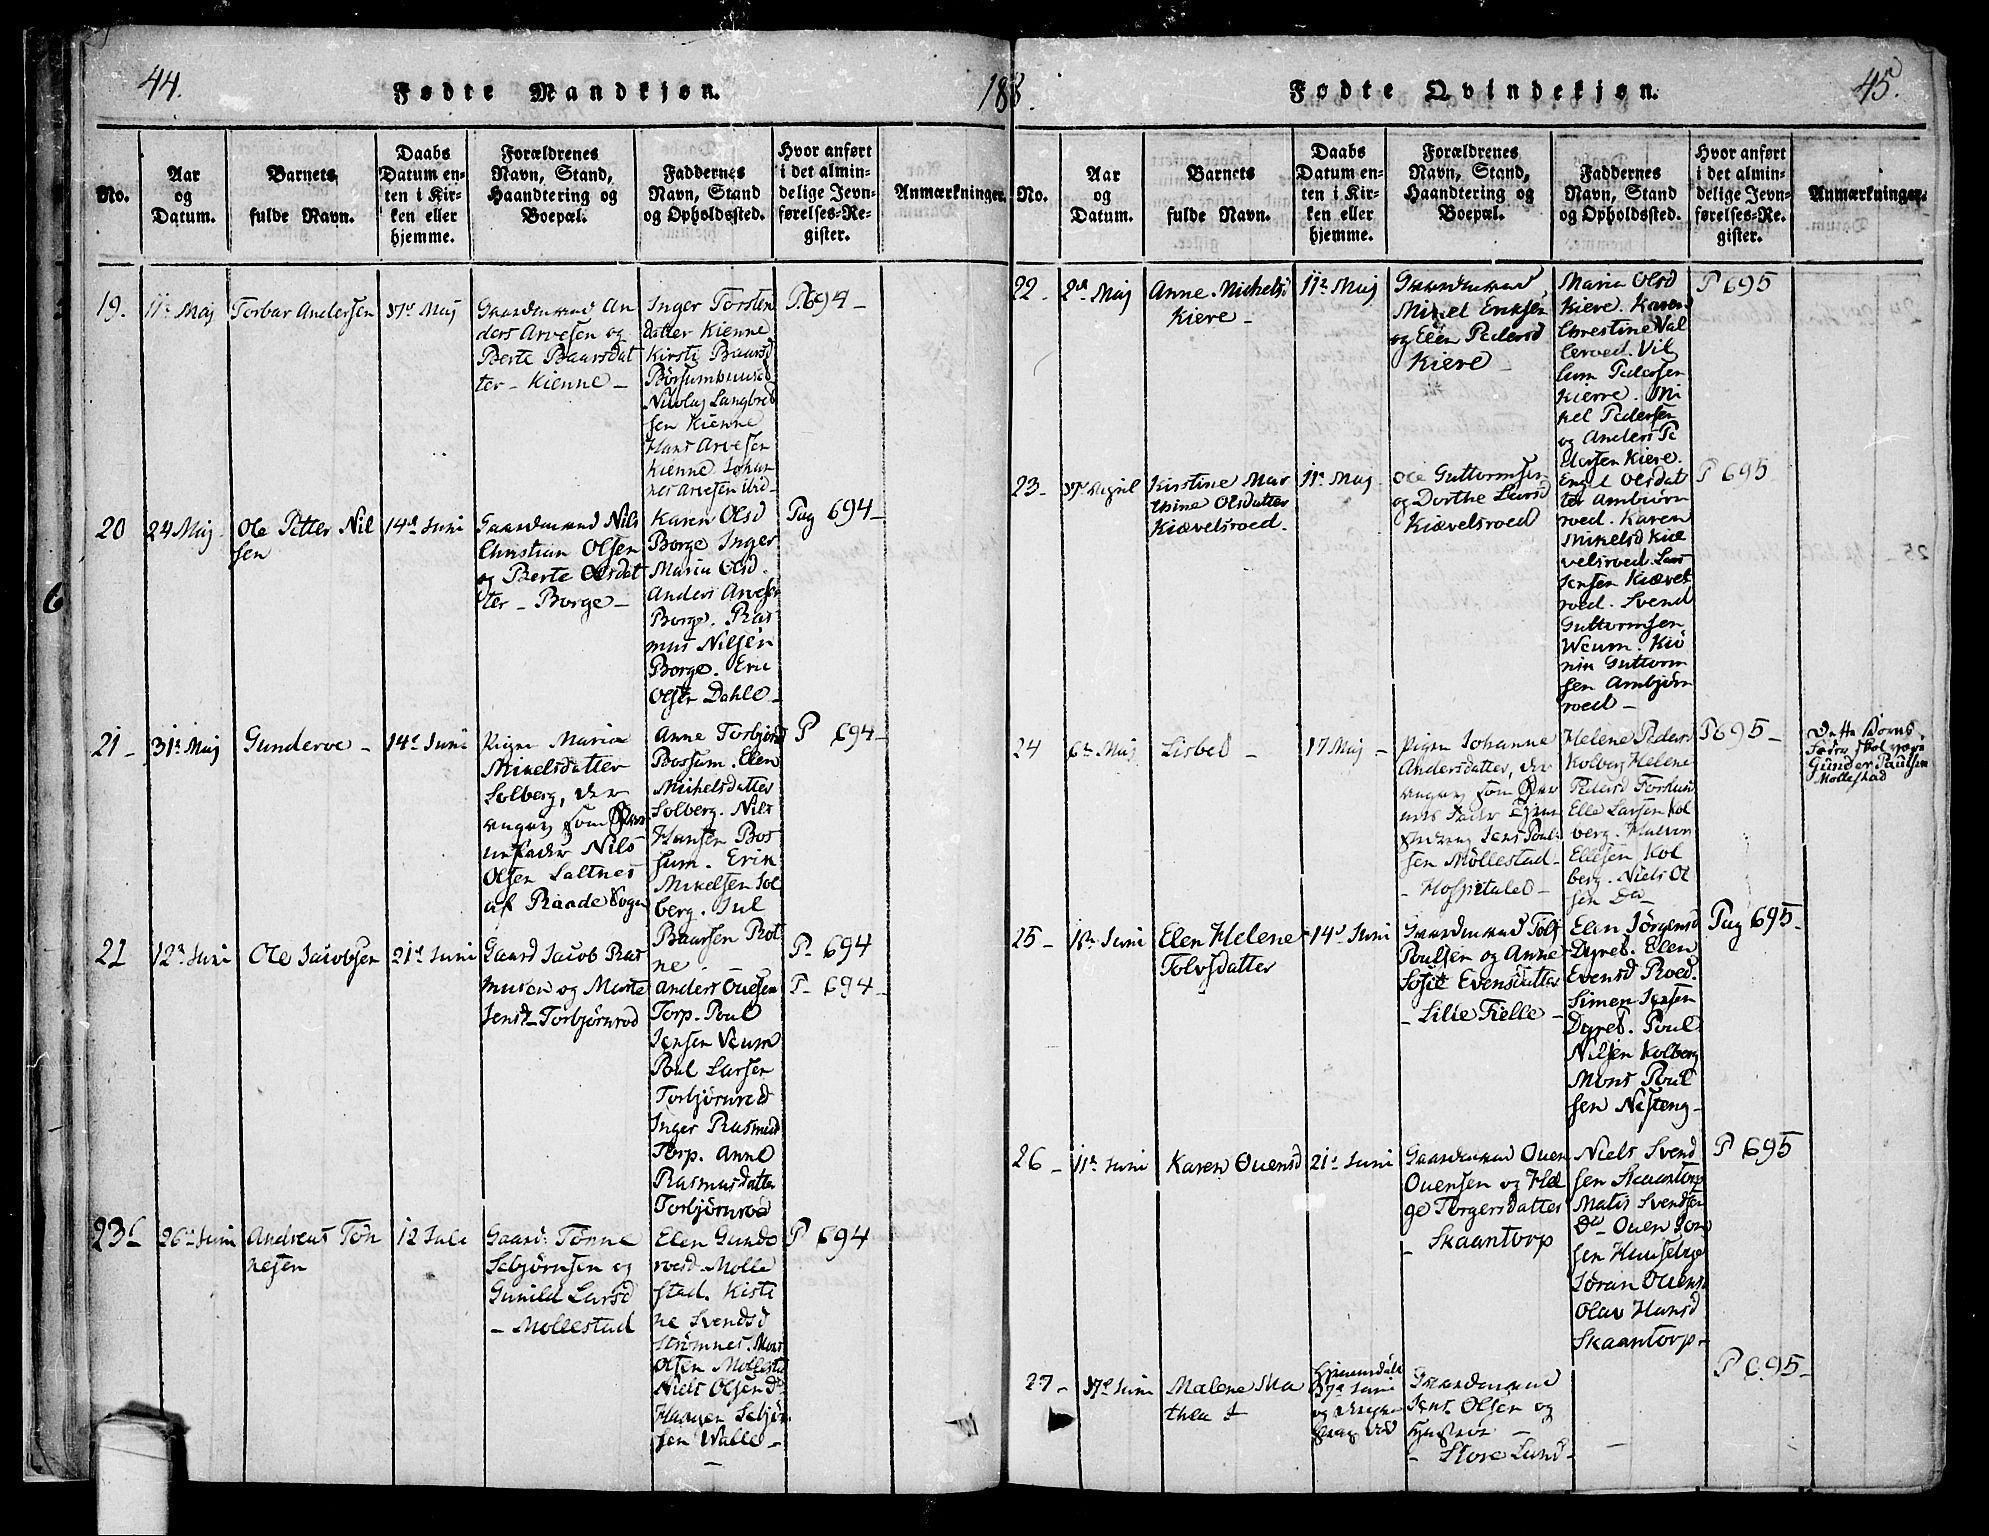 44.
Fødte Mandkjøn.
188.
No.
Aar
og
Datum.
Barnets
fulde Navn.
Daabs
Datum en-
ten i Kir-
ken eller
hjemme.
Forældrenes
Navn, Stand,
Haandtering og
Boepæl.
Faddernes
Navn, Stand
og Opholdssted.
Hvor anført
i det almin-
delige Jevn-
førelses-Re-
gister.
Anmærkninger.
19.
11te Maj
Torbar Andersen
17de Maj
Gaardmand An
ders Arvesen og
Berte Baarsdat
ter - Kienne -
Inger Torsten
datter Kienne
Kirsti Baarsd
Nicolaj Langbret
sen Kienne
Hans Arvesen
Kienne Johan
nes Arvesen ibid
P 694 -
20
24 Maj
Ole Petter Nil
sen
14de Juni
Gaardmand Nils
Christian Olsen
og Berte Olsdat
ter - Borge -
Karen Olsd
Borge Inger
Maria Olsd.
Anders Arvesen
Borge. Ras
mus Nilsen
Borge. Eric
Olsen Dahle -
Pag 694 -
21 -
31te Maj
Gunderoe -
14de Juni
Pigen Maria
Mikelsdatter
Solberg, der
angav som
Nils
Olsen Saltnes
af Raade Sogn
Anne Torbjørsd
Bossum. Elen
Mikelsdatter
Solberg. Nils
Hansen Bos
sum. Erik
Mikelsen Sol
berg. Jul
Baarsen Rot
ne
P 694 -
21
12te Juni
Ole Jacobsen
21de Juni
Gaard Jacob Ras
musen og Marte
Jensd - Torbjørnrød
Anders Ouesen
Torp. Poul
Jensen Veum
Poul Larsen
Torbjørnrød
Inger Rasmusd
Torp. Anne
Rasmusdatter
Torbjørnrød
P - 694
P - 694 -
23
26de Juni
Andreas Tøn
nesen
12 Juli
Gaard. Tønne
Sebjørnsen og
Gunild Larsd
- Mollestad
Elen Gunde
roesd. Molle
stad. Kisti
ne Svendsd
Strømnes. Mons
Olsen Mollestad
Niels Olsen do
Haagen Sebjørn
sen Walle -
P 694
45.
Fødte Qvindekjøn.
No.
Aar
og
Datum.
Barnets
fulde Navn.
Daabs
Datum en-
ten i Kir-
ken eller
hjemme.
Forældrenes
Navn, Stand,
Haandtering og
Boepæl.
Faddernes
Navn, Stand
og Opholdssted.
Hvor anført
i det almin-
delige Jevn-
førelses-Re-
gister.
Anmærkninger.
22 -
2de Maj
Anne Michelsd
Kiere -
11te Maj
Gaardmand
Mikel Eriksen
og Elen Pedersd
Kiere -
Maria Olsd
Kiere. Karen
Christine Val
lerød. Vil
lum Pedersen
Kierre. Mi
kel Pedersen
og Anders Pe
dersen Kiere.
P 695
23 -
17de April
Kirstine Mar
thine Olsdatter
Kiøvelsroed.
11te Maj
Ole Guttormsen
og Dorthe Larsd
Kiøvelsroed
Engel Olsdat
ter Ambiørn
roed. Karen
Mikelsd Kiø
velsroed. Lars
Jensen Kiøvels
roed. Svend
Guttormsen
Weum.
Guttorm
sen Ambjørn
roed -
P 695
24
6te Maj
Lisbet -
17 Maj -
Pigen Johanne
Andersdatter, der
angav som
Jens Poul
sen Møllestad -
- Hospitalet -
Helene Peders
Kolberg Helene
Elle Larsen Kol
berg. Halvor
Ellesen Kol
berg. Niels Ol
sen Do
P 695 -
Dette Barns
Fader skal være
Gunder Paulsen
Mollestad
25 -
Juni
Elen Helene
Tolvsdatter
14de Juni
Gaardmand Tolf
Poulsen og Anne
Sofie Evensdatter
- Lille Fielle -
Elen Jørgensd
Dyreb. Elen
Evensd Roed.
Simen Jensen
Dyreb. Poul
Nilsen Kolberg
Mons Poul
sen Nesteng -
Pag 695 -
26 -
11te Juni
Karen Ouensd
21de Juni
Gaardmand Ouen
Ouensen og Hel
ge Torgersdatter
- Skaantorp
Niels Svend
sen Skaantorp
Matis Svendsen
Do Ouen Jon
sen Huuseby
Jøran Ouens
Olav Hansd
Skaantorp -
P 695
27 -
17de Juni
Malene Ma
thea †
Hjemmedøbt
17de Juni
Gaardmand
Jens Olsen og
Hustrue -
- Store Lund -
-
P 695